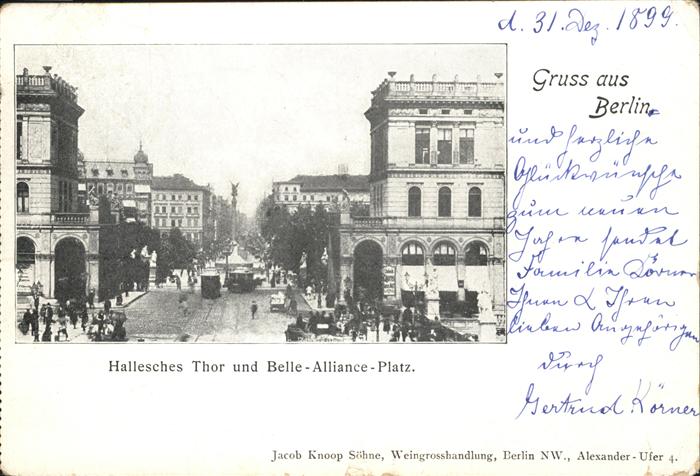 d. 31. Dez. 1899.
Gruss aus
Berlin.
und herzliche
Glückwünsche
zum neuen
Jahre sendet
Familie Körner
Ihnen & Ihren
lieben Angehörigen
durch
Gertrud Körner
Hallesches Thor und Belle-Alliance-Platz.
Jacob Knoop Söhne, Weingrosshandlung, Berlin NW., Alexander-Ufer 4.